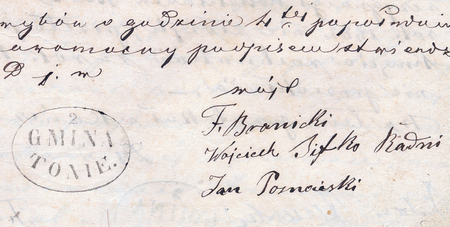 wyborów o godzinie 4tej popołudniu
podpisem stwierdz
D j. w
wójt
F. Branicki
Wojciech Sifko Radni
Jan Posnański
2
GMINA
TONIE.